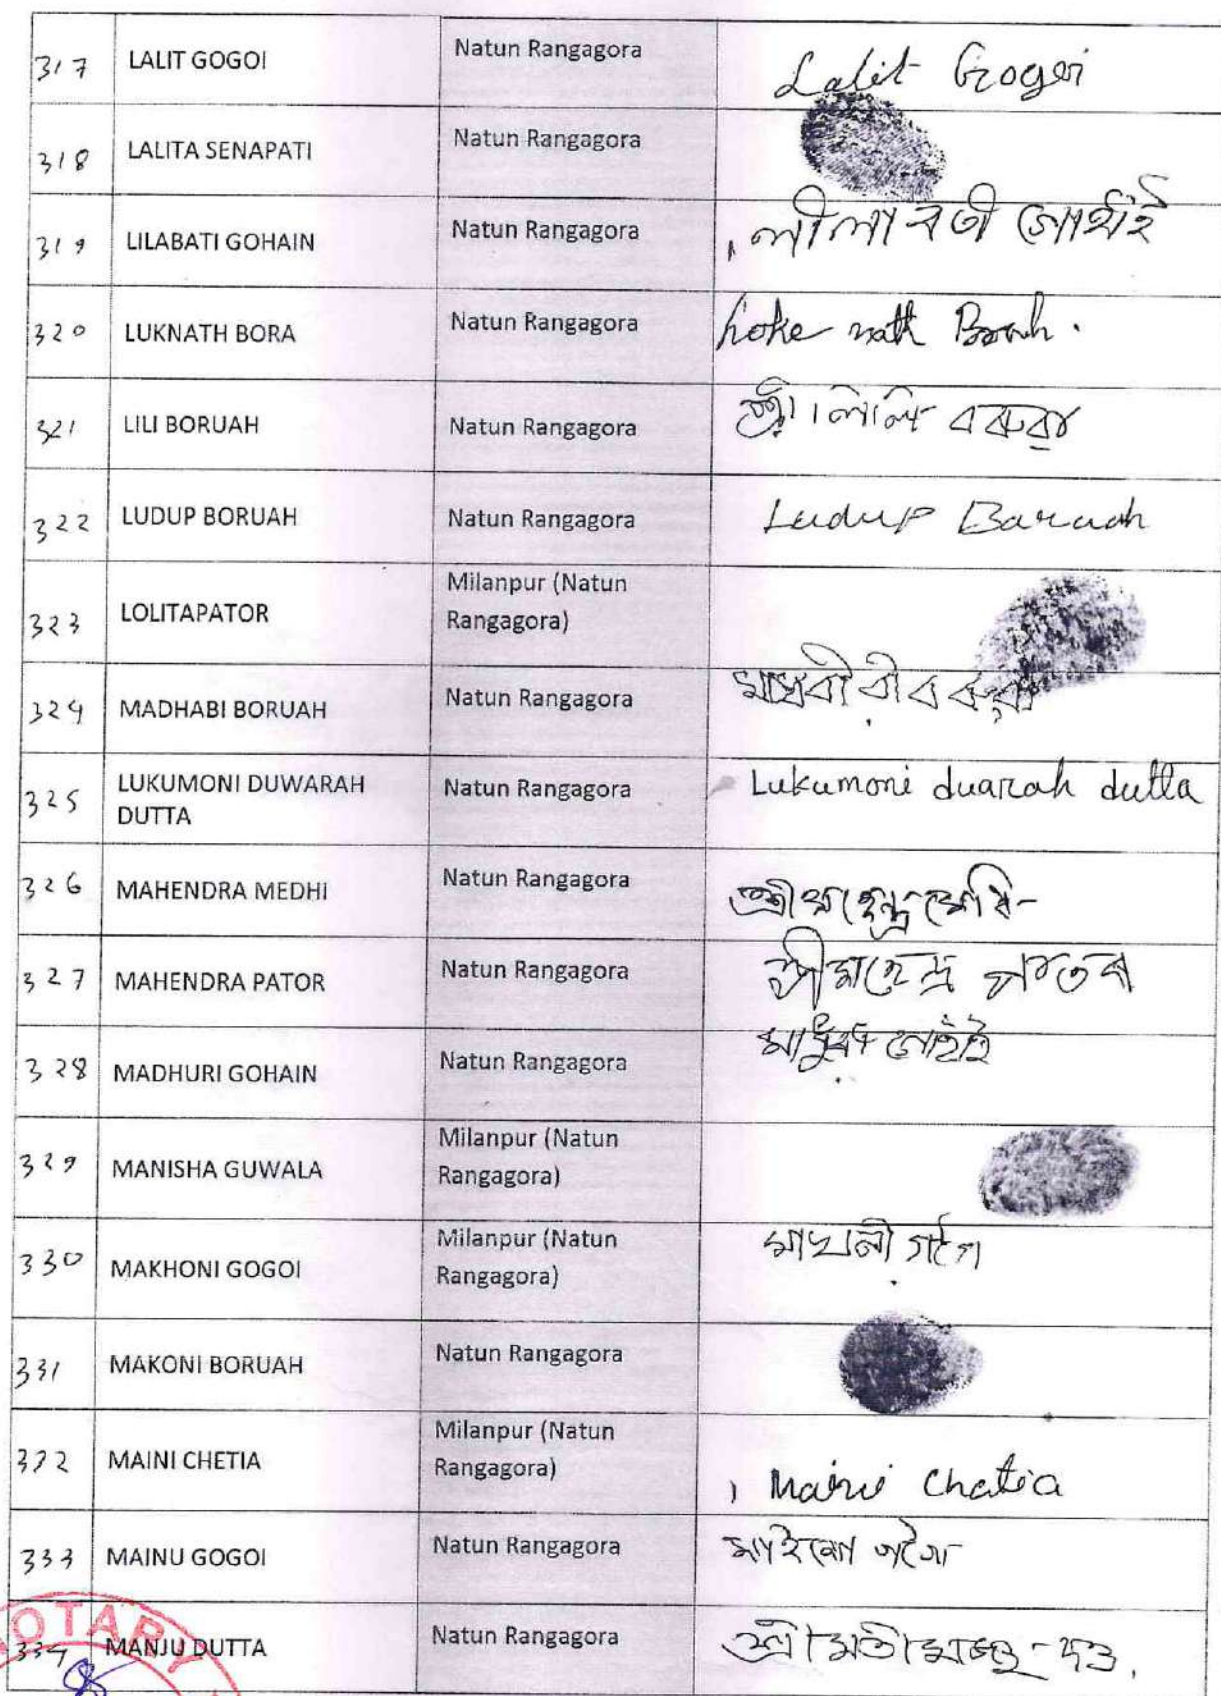 317 LALIT GOGOI Natun Rangagora Lalit Gogoi
318 LALITA SENAPATI Natun Rangagora
319 LILABATI GOHAIN Natun Rangagora লীলাৱতী গোহাঁই
320 LUKNATH BORA Natun Rangagora Loke nath Borah.
321 LILI BORUAH Natun Rangagora শ্ৰী লিলি বৰুৱা
322 LUDUP BORUAH Natun Rangagora Ludup Baruah
323 LOLITAPATOR Milanpur (Natun
Rangagora)
324 MADHABI BORUAH Natun Rangagora মাধবী বৰুৱা
325 LUKUMONI DUWARAH
DUTTA Natun Rangagora Lukumoni duarah dutta
326 MAHENDRA MEDHI Natun Rangagora শ্ৰী মহেন্দ্ৰ মেধি
327 MAHENDRA PATOR Natun Rangagora শ্ৰী মহেন্দ্ৰ পাতৰ
328 MADHURI GOHAIN Natun Rangagora গোহাঁই
329 MANISHA GUWALA Milanpur (Natun
Rangagora)
330 MAKHONI GOGOI Milanpur (Natun
Rangagora) মাখনী গগৈ
331 MAKONI BORUAH Natun Rangagora
332 MAINI CHETIA Milanpur (Natun
Rangagora) Maini Chatia
333 MAINU GOGOI Natun Rangagora মাইনো গগৈ
334 MANJU DUTTA Natun Rangagora শ্ৰীমতী মঞ্জু - দত্ত.
NOTARY